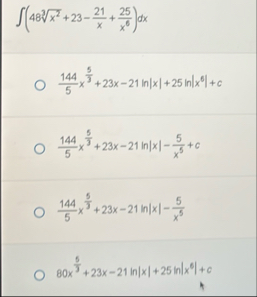 ∫(48∛x² + 23 − 21/x + 25/x⁶)dx
144/5 x^(5/3) + 23x − 21 ln|x| + 25 ln|x⁶| + c
144/5 x^(5/3) + 23x − 21 ln|x| − 5/x⁵ + c
144/5 x^(5/3) + 23x − 21 ln|x| − 5/x⁵
80x^(5/3) + 23x − 21 ln|x| + 25 ln|x⁶| + c